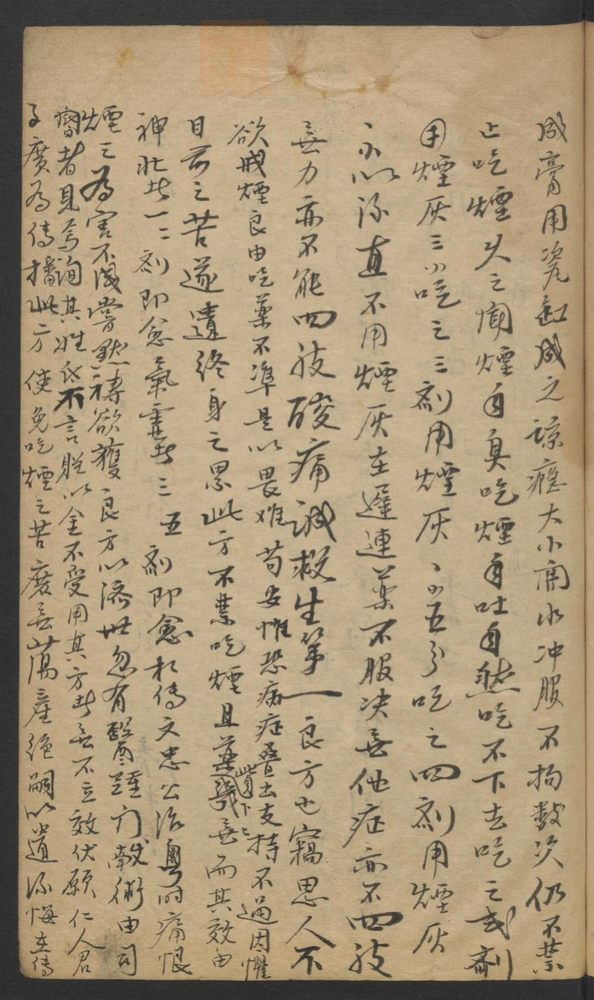 成膏用瓷缸成之諒癮大小開水冲服不拘數次仍不禁
止吃煙火之燗煙自臭吃煙自吐自然吃不下去吃二式劑
用煙灰三分吃之三劑用煙灰一分五分吃之四劑用煙灰
一分以除直不用煙灰在遲連藥不服决無他症亦不四肢
無力亦不能四肢酸痛誠救生第一良方也竊思人不
欲戒煙良由吃藥不準是以畏难苟安惟恐病症叠出支持不過因懼
目前之苦遂遺終身之累此方不禁吃煙且藥喂無而其效由
神壯者一二劑即愈氣虛者三五劑即愈林傳文忠公治粵时痛恨
煙之為害不淺嘗默祷欲獲良方以濟世忽有醫踵门献術由司
閽者見焉詢其姓氏不言脱以金不受用其方者無不立效伏願仁人君
子廣為傳播此方使免吃煙之苦庶無蕩產絕嗣以遺後悔立傳